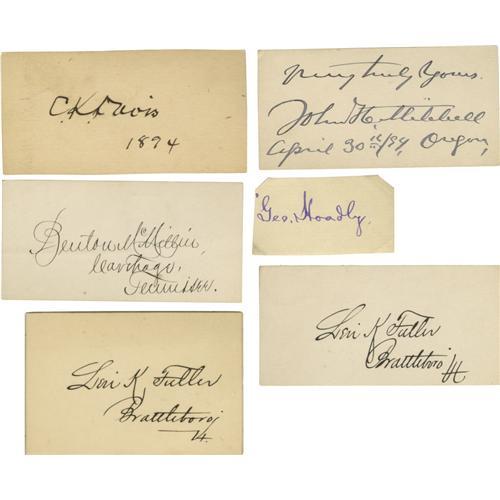 C K Davis
1894
Very truly Yours.
John H. Mitchell
April 30th/94, Oregon,
Benton McMillin,
Carthage,
Tennessee.
Geo. Hoadly.
Levi K. Fuller
Brattleboro
Vt.
Levi K Fuller
Brattleboro Vt